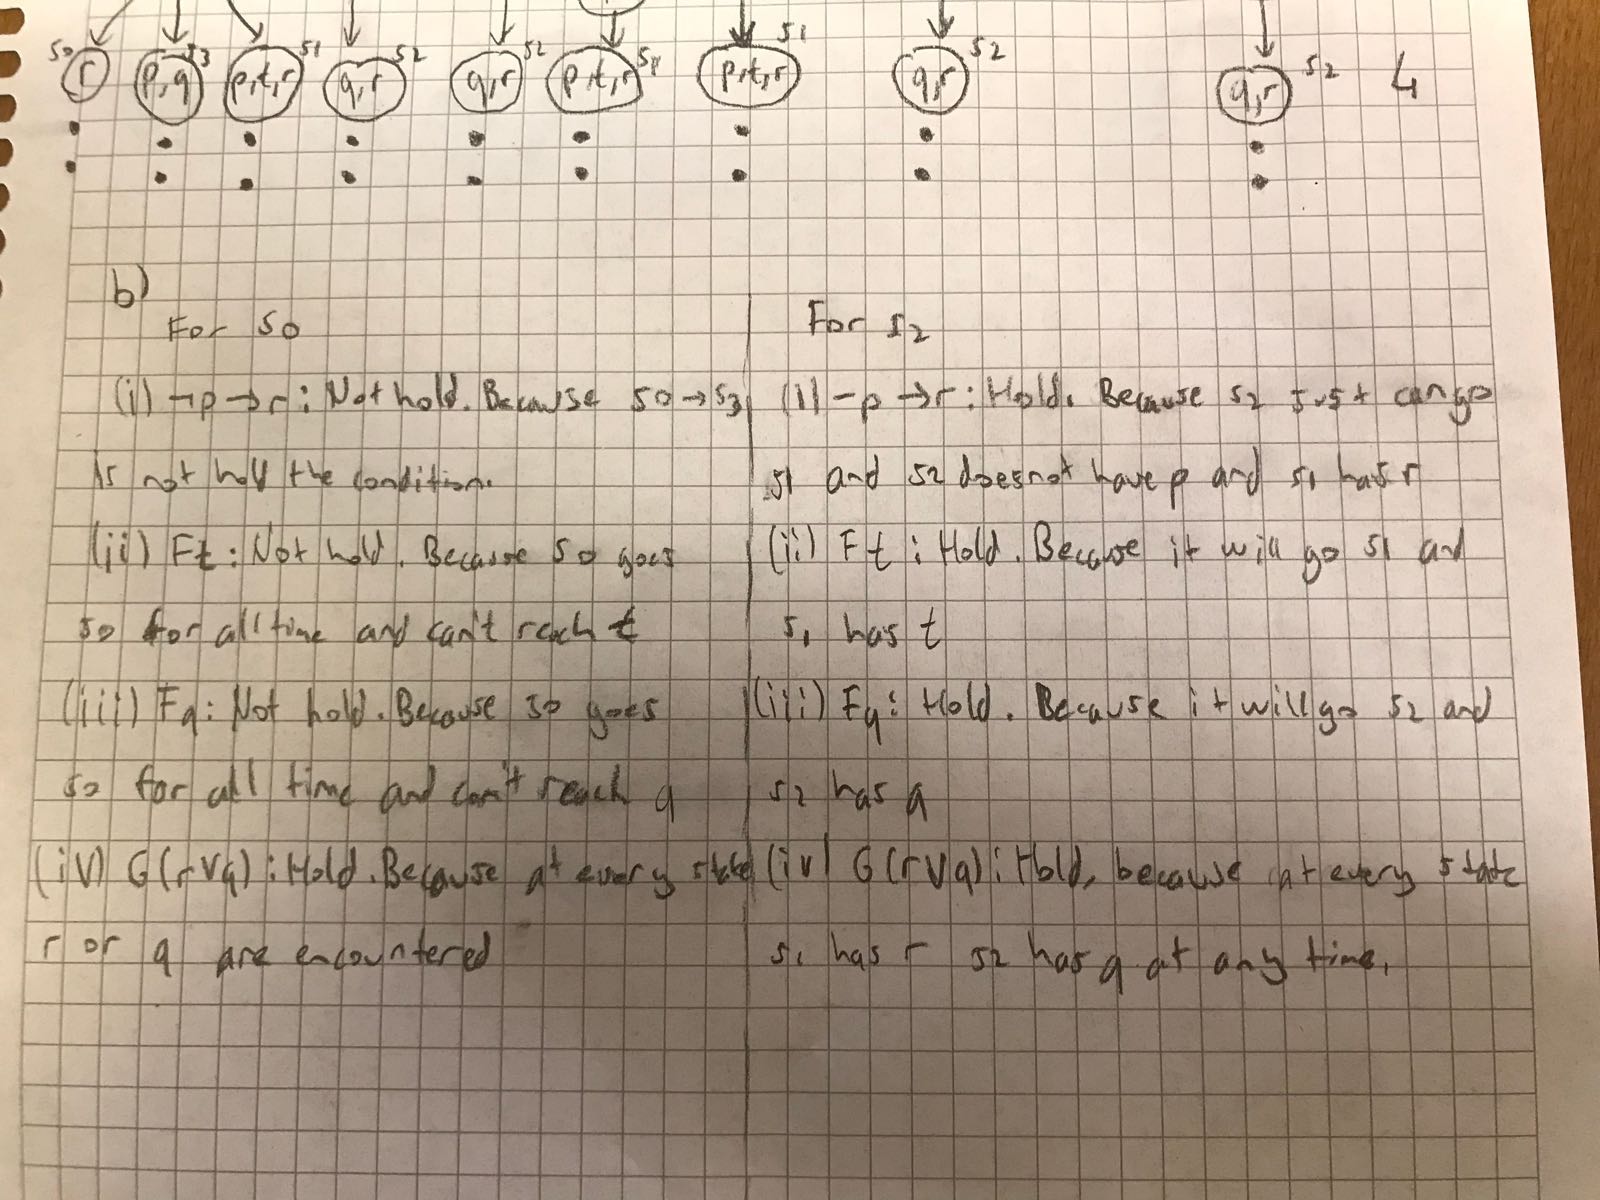 s0 r p,q s3 p,t,r s1 q,r s2 q,r s2 p,t,r s1 p,t,r s1 q,r s2 q,r s2 4
b)
For s0
(i) ¬p→r : Not hold. Because s0→s3
is not hold the condition.
(ii) Ft : Not hold. Because s0 goes
s0 for all time and can't reach t
(iii) Fq : Not hold. Because s0 goes
s0 for all time and can't reach q
(iv) G(r∨q) : Hold. Because at every state
r or q are encountered
For s2
(i) ¬p→r : Hold. Because s2 just can go
s1 and s2 does not have p and s1 has r
(ii) Ft : Hold. Because it will go s1 and
s1 has t
(iii) Fq : Hold. Because it will go s2 and
s2 has q
(iv) G(r∨q) : Hold, because at every state
s1 has r s2 has q at any time.